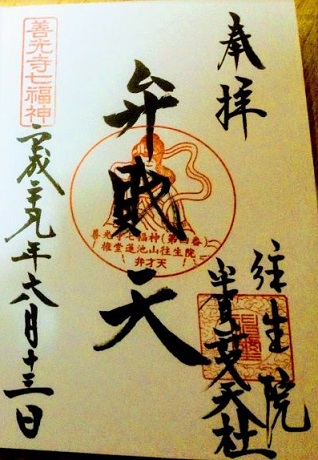 奉拝
往生院
弁財天社
弁財天
善光寺七福神(第四番)
権堂蓮池山往生院
弁才天
善光寺七福神
平成二十九年六月十三日